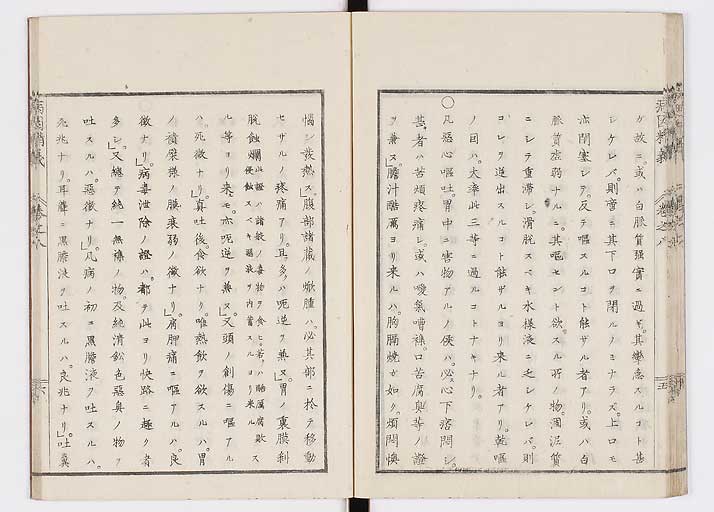 ガ故ニ或ハ白脈質强實ニ過ギ其攣急スルコト甚
シケレバ則啻ニ其下口ヲ閉ルノミナラズ上口モ
亦閉塞シテ反テ嘔スルコト能ザル者アリ或ハ白
脈質虚弱ナルニ其嘔セント欲スル所ノ物涸泥質
ニシテ重滞シ滑脫スベキ水樣液ニ乏シケレバ則
コレヲ送出スルコト能ザルヨリ来ル者アリ乾嘔
ノ因ハ大率此三等ニ過ルコトナキナリ
〇凡惡心嘔吐胃中ニ害物アルノ侯ハ必心下痞悶シ
甚者ハ苦煩疼痛シ或ハ噯氣嘈襍口苦腐臭等ノ證
ヲ兼ス膽汁酷厲ヨリ来ルハ胸膈焼ガ如ク煩悶懊
惱シ發熱ス腹部諸藏ノ焮腫ハ必其部ニ於テ移動
セザルノ疼痛アリ且多ハ呃逆ヲ兼ヌ胃ノ裏膜剥
脫蝕爛此證ハ諸般ノ毒物ヲ食ヒ若ハ酷厲腐敗ス
侵蝕スベキ惡液ヲ内蓄スルヨリ来ル
ル等ヨリ来モ亦呃逆ヲ兼ヌ又頭ノ創傷ニ嘔アル
ハ死徴ナリ真吐後食飲ナリ唯熱飲ヲ欲スルハ胃
ノ積襞様ノ膜衰弱ノ徴ナリ肩胛痛ニ嘔アルハ良
徴ナリ〇病毒泄除ノ證ハ都テ此ヨリ快路ニ趣ク者
多シ又總テ純一無襍ノ物及純清鉛色惡臭ノ物ヲ
吐スルハ惡徴ナリ凡病ノ初ニ黒膽液ヲ吐スルハ
死兆ナリ耳聾ニ黒膽液ヲ吐スルハ良兆ナリ吐糞
病因精義 巻之八 五
巻之八 六